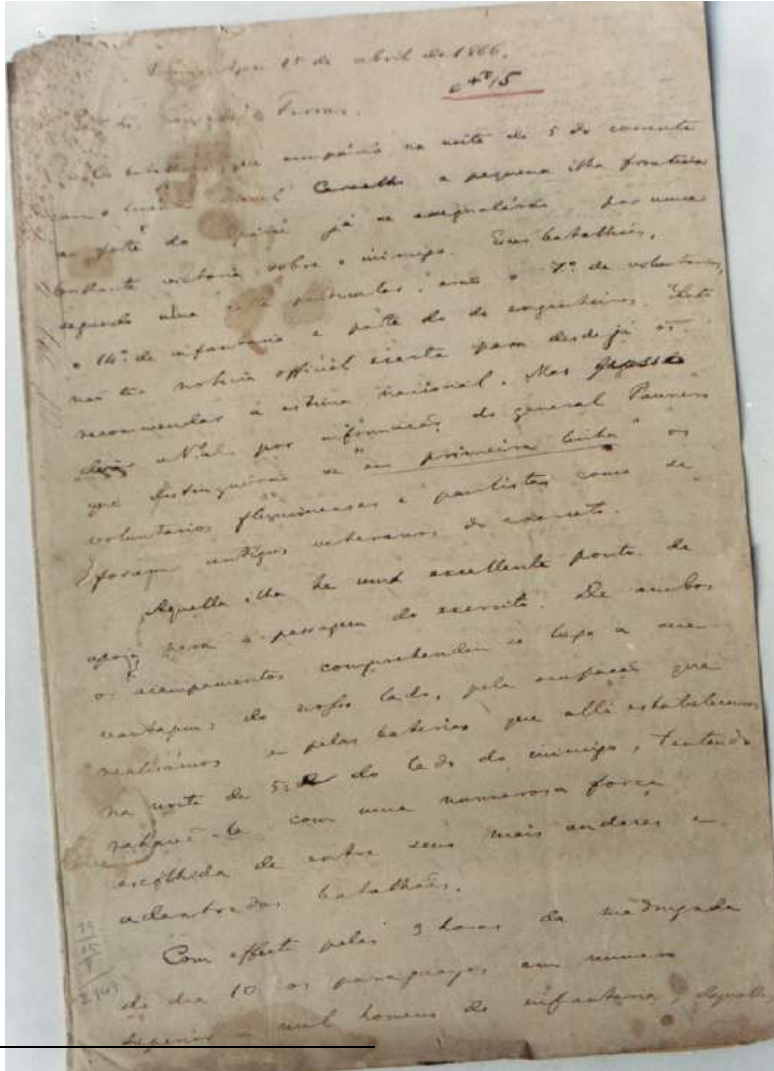 15 de abril de 1866.
c 40/5
Ferraz.
Os batalhões que occupárão na noite de 5 do corrente
com o tenente coronel Carvalho a pequena ilha fronteira
ao forte do Itapirú já se assignalárão por uma
brilhante victoria sobre o inimigo. Esses batalhões,
segundo uma carta particular, erão o 7º de voluntarios,
o 14º de infantaria e parte do de engenheiros. Inda
não ha noticia official exacta para desde já os
recommendar á estima nacional. Mas
por informação do general Paunero
que distinguirão-se "em primeira linha" os
voluntarios fluminenses e paulistas como se
forão antigos veteranos do exercito.
Aquella ilha he um excellente ponto de
apoio para a passagem do exercito. De ambos
os acampamentos comprehendeu-se logo a sua
vantagem: do nosso lado, pela occupação que
realisámos e pelas baterias que alli estabelecemos
na noite de 5; do lado do inimigo, tentando
rehavê-la com uma numerosa força
escolhida de entre seus mais audazes e
adestrados batalhões.
Com effeito pelas 3 horas da madrugada
do dia 10 os paraguayos em numero
superior a mil homens de infantaria, daquella